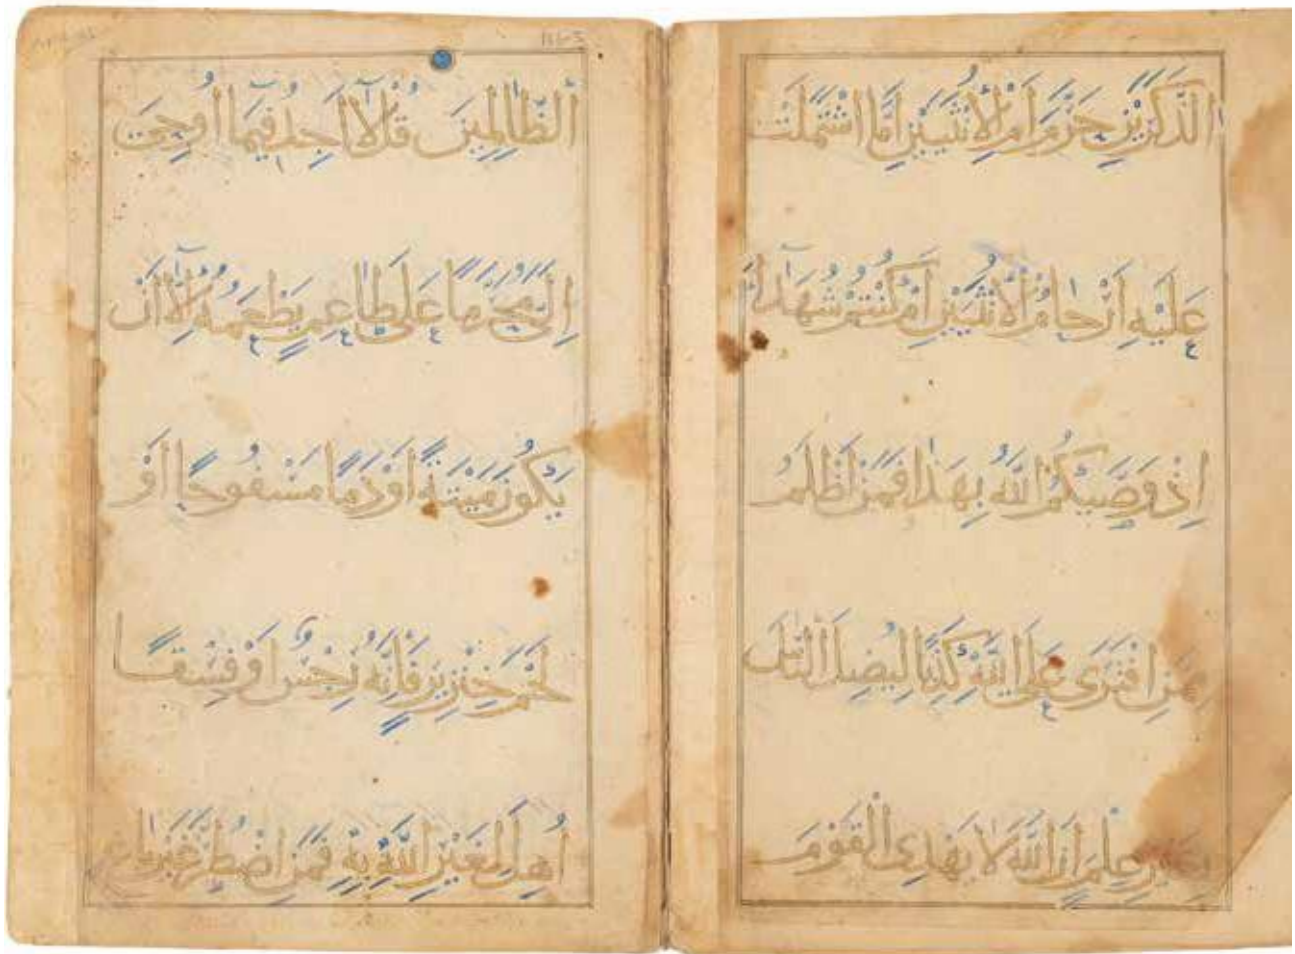 اَلذَّكَرَيْنِ حَرَّمَ اَمِ الْاُنْثَيَيْنِ اَمَّا اشْتَمَلَتْ
عَلَيْهِ اَرْحَامُ الْاُنْثَيَيْنِ اَمْ كُنْتُمْ شُهَدَآءَ
اِذْ وَصّٰيكُمُ اللّٰهُ بِهٰذَا فَمَنْ اَظْلَمُ
مِمَّنِ افْتَرٰى عَلَى اللّٰهِ كَذِبًا لِيُضِلَّ النَّاسَ
بِغَيْرِ عِلْمٍ اِنَّ اللّٰهَ لَا يَهْدِى الْقَوْمَ
الظَّالِمِينَ قُلْ لَآ اَجِدُ فِيمَآ اُوحِىَ
اِلَىَّ مُحَرَّمًا عَلٰى طَاعِمٍ يَطْعَمُهُ اِلَّآ اَنْ
يَكُونَ مَيْتَةً اَوْ دَمًا مَسْفُوحًا اَوْ
لَحْمَ خِنْزِيرٍ فَاِنَّهُ رِجْسٌ اَوْ فِسْقًا
اُهِلَّ لِغَيْرِ اللّٰهِ بِهِ فَمَنِ اضْطُرَّ غَيْرَ بَاغٍ